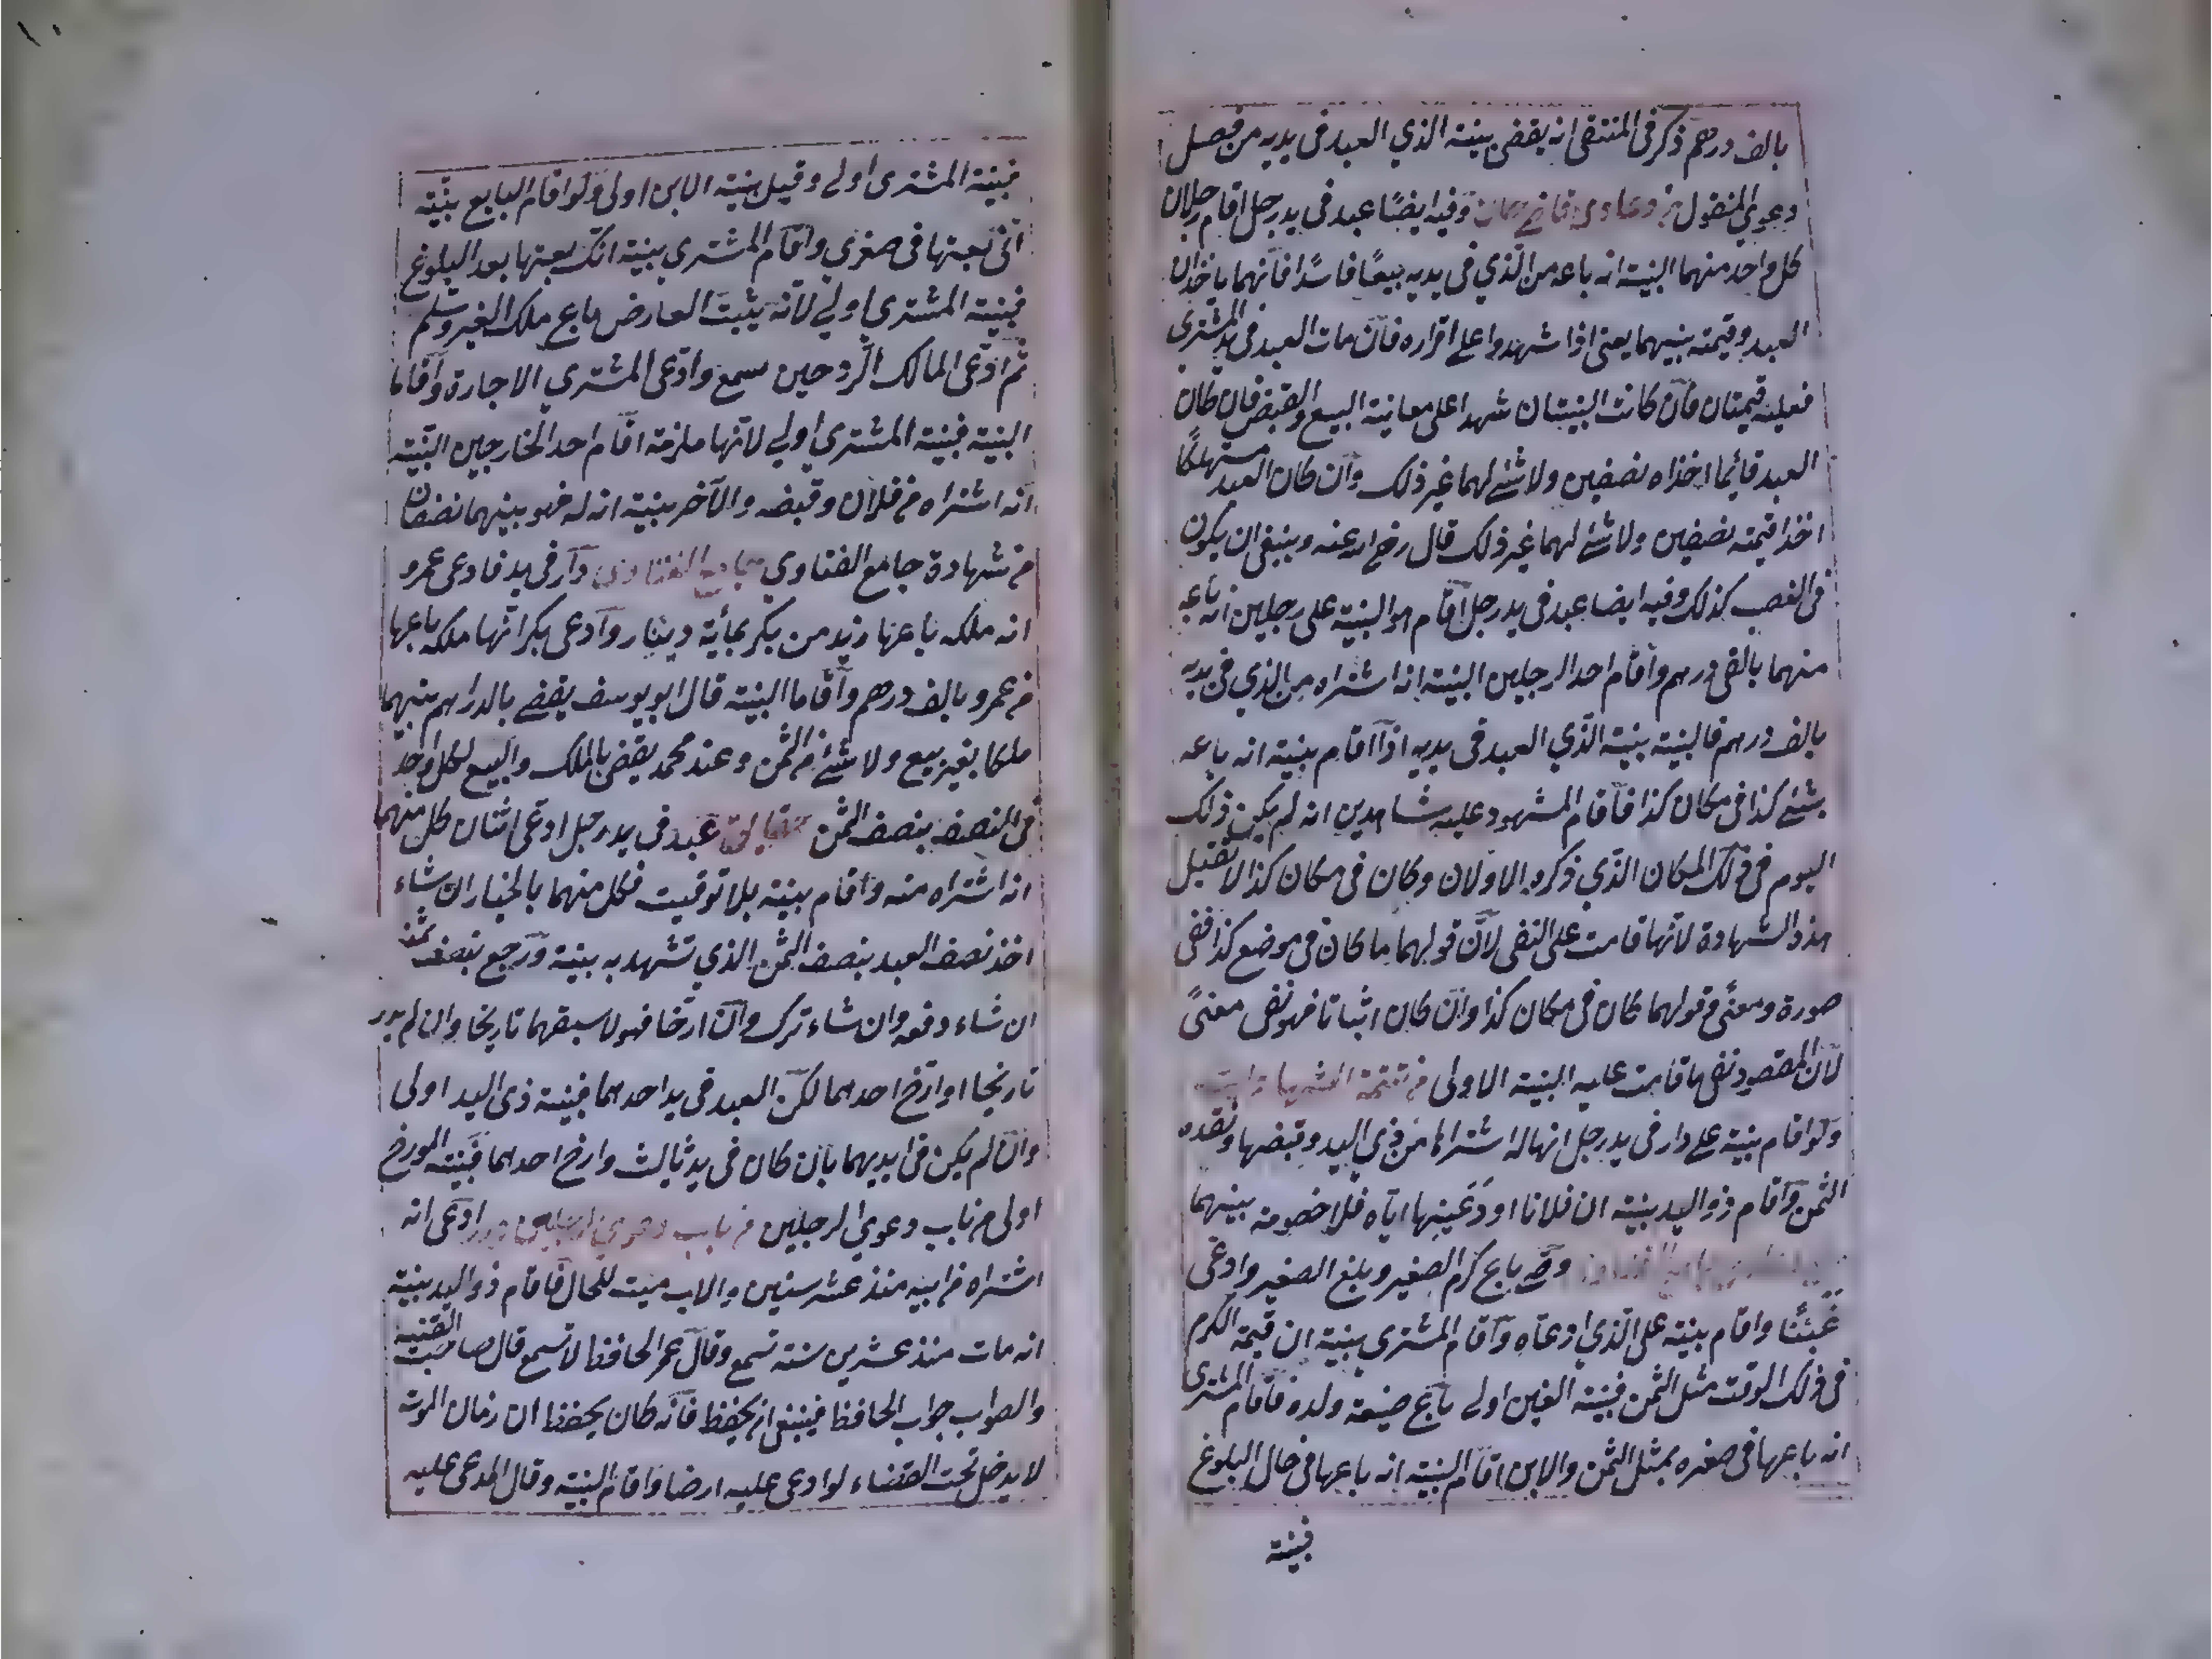 بالف درهم ذكر في المنتقى انه يقضى ببينة الذي العبد في يديه من فصل
دعوي المنقول وفيه ايضًا عبد في يد رجل اقام رجلان
كل واحد منهما البينة انه باعه من الّذي في يديه بيعًا فاسدًا فانهما ياخذان
العبد وقيمته بينهما يعني اذا شهدوا على اقراره فان مات العبد في يد المشتري
فعليه قيمتان فان كانت البينتان شهدا على معاينة البيع والقبض فان كان
العبد قائما اخذاه نصفين ولا شئ لهما غير ذلك وان كان العبد مستهلكًا
اخذا قيمته نصفين ولا شئ لهما غير ذلك قال رضي الله عنه وينبغي ان يكون
في الغصب كذلك وفيه ايضا عبد في يد رجل اقام هو البينة على رجلين انه باعه
منهما بالفي درهم واقام احد الرجلين البينة انه اشتراه من الذي في يديه
بالف درهم فالبينة بينة الّذي العبد في يديه اذا اقام بينة انه باعه
بشئ كذا في مكان كذا فاقام المشهود عليه شاهدين انه لم يكن ذلك
اليوم في ذلك المكان الذي ذكره الاولان وكان في مكان كذا لا تقبل
هذه الشهادة لانها قامت على النفي لانّ قولهما ما كان في موضع كذا نفى
صورة ومعنًى وقولهما كان في مكان كذا وان كان اثباتا فهو نفى معنًى
لان المقصود نفى ما قامت عليه البينة الاولى من تتمة الشهادات
ولو اقام بينة على دار في يد رجل انها له اشتراها من ذي اليد وقبضها ونقده
الثمن واقام ذو اليد بينة ان فلانا اودعنيها اياه فلا خصومة بينهما
وصي باع كرم الصغير وبلغ الصغير وادعى
غبنًا واقام بينة على الّذي ادعاه واقام المشترى بينة ان قيمة الكرم
في ذلك الوقت مثل الثمن فبينة الغبن اولى باع ضيعة ولده فاقام المشتري
انه باعها في صغره بمثل الثمن والابن اقام البينة انه باعها في حال البلوغ
فبينة
فبينة المشترى اولى وقيل بينة الابن اولى ولو اقام البايع بينة
انّى بعتها في صغري واقام المشتري بينة انك بعتها بعد البلوغ
فبينة المشتري اولى لانه يثبت العارض باع ملك الغير وسلم
ثم ادّعى المالك الرد حين سمع وادّعى المشتري الاجارة واقاما
البينة فبينة المشتري اولى لانها ملزمة اقام احد الخارجين البينة
انه اشتراه من فلان وقبضه والآخر بينة انه له فهو بينهما نصفان
من شهادة جامع الفتاوي دار في يد فادعى عمرو
انه ملكه باعها زيد من بكر بمأية دينار وادعى بكر انها ملكه باعها
من عمرو بالف درهم واقاما البينة قال ابو يوسف يقضي بالدراهم بينهما
ملكا بغير بيع ولا شئ من الثمن وعند محمد يقضى بالملك والبيع لكل واحد
في النصف بنصف الثمن عبد في يد رجل ادعى اثنان كل منهما
انه اشتراه منه واقام بينة بلا توقيت فكل منهما بالخيار ان شاء
اخذ نصف العبد بنصف الثمن الذي تشهد به بينة ورجع بنصف ثمنه
ان شاء دفعه وان شاء ترك وان ارّخا فهو لاسبقهما تاريخا وان لم
تاريخا او ارّخ احدهما لكن العبد في يد احدهما فبينة ذى اليد اولى
وان لم يكن في ايديهما بان كان في يد ثالث وارخ احدهما فبينة المورخ
اولى من باب دعوي الرجلين من باب دعوي الرجلين ادّعى انه
اشتراه من ابيه منذ عشر سنين والاب ميت للحال فاقام ذو اليد بينة
انه مات منذ عشرين سنة تسمع وقال عمر الحافظ لا تسمع قال صاحب القنية
والصواب جواب الحافظ فينبغي ان يحفظ فانّه كان يحفظ ان زمان الموت
لا يدخل تحت القضاء لو ادعى عليه ارضا واقام البينة وقال المدعى عليه